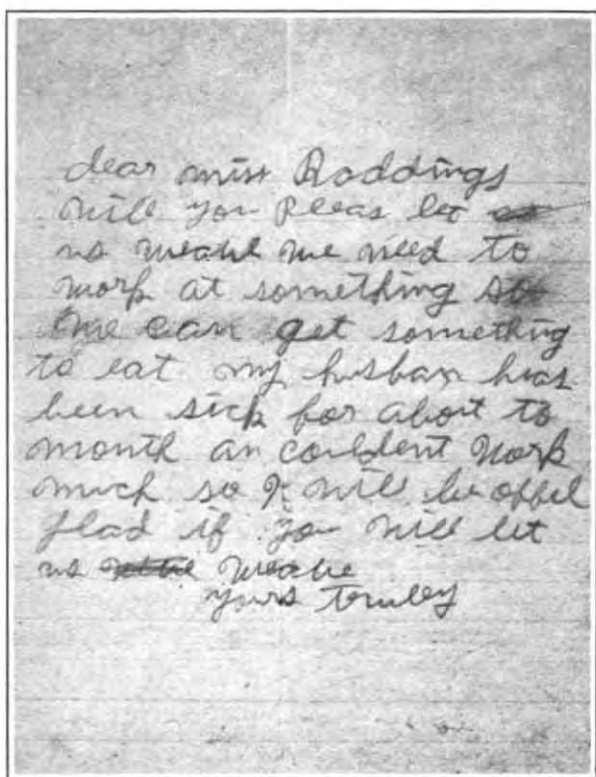 dear miss Roddings
will you Pleas let
us weave we need to
work at something so
we can get something
to eat my husban has
been sick for about to
month an couldent work
much so I will be offel
glad if you will let
us weave
yours truley